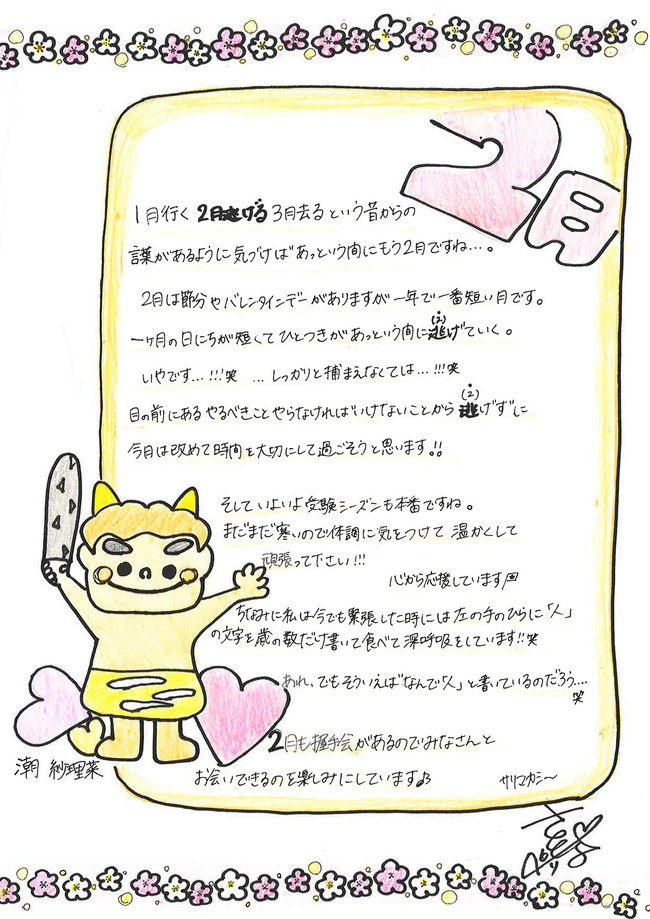 2月
1月行く 2月逃げる 3月去る という昔からの
言葉があるように気づけば あっという間にもう2月ですね…。
2月は節分やバレンタインデーがありますが一年で一番短い月です。
一ヶ月の日にちが短くてひとつきがあっという間に逃げていく。
(に)
いやです…!!!笑 …しっかりと捕まえなくては…!!!笑
(に)
目の前にあるやるべきことやらなければいけないことから逃げずに
今月は改めて時間を大切にして過ごそうと思います!!
そしていよいよ受験シーズンも本番ですね。
まだまだ寒いので体調に気をつけて 温かくして
頑張って下さい!!!
心から応援しています
ちなみに私は今でも緊張した時には左の手のひらに「人」
の文字を歳の数だけ書いて食べて深呼吸をしています!!笑
あれ、でもそういえばなんで「人」と書いているのだろう…
笑
2月も握手会があるのでみなさんと
お会いできるのを楽しみにしています♪
サリマカシ〜
潮 紗理菜